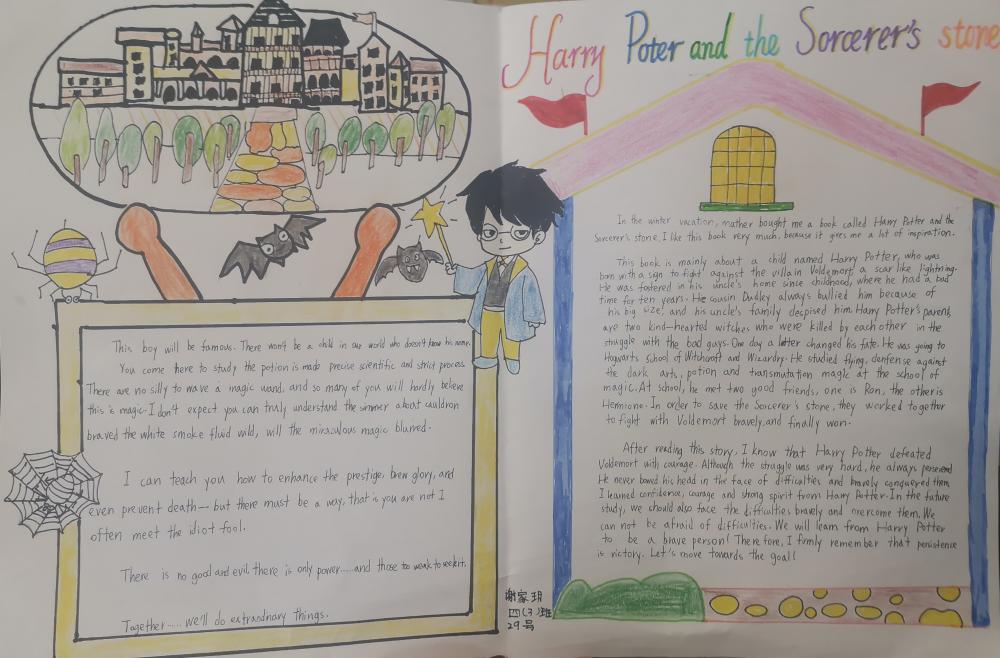 Harry Poter and the Sorcerer's stone
This boy will be famous. There won't be a child in our world who doesn't know his name.
You come here to study the potion is made precise scientific and strict process
There are no silly to wave a magic wand, and so many of you will hardly believe
this is magic. I don't expect you can truly understand the simmer about cauldron
braved the white smoke fluid wild, will the miraculous magic blurred.
I can teach you how to enhance the prestige, brew glory, and
even prevent death— but there must be a way, that is you are not I
often meet the idiot fool.
There is no good and evil, there is only power.....and those too weak to seek it.
Together..... we'll do extraordinary things.
In the winter vacation, mather bought me a book called Harry Potter and the
Sorcerer's stone. I like this book very much, because it gives me a lot of inspiration.
This book is mainly about a child named Harry Potter, who was
born with a sign to fight against the villain Voldemort, a scar like lightning.
He was fostered in his uncle's home since childhood, where he had a bad
time for ten years. He cousin Dudley always bullied him because of
his big size, and his uncle's family decpised him. Harry Potter's parents
are two kind-hearted witches who were killed by each other in the
struggle with the bad guys. One day a letter changed his fate. He was going to
Hogwarts school of Witchcraft and Wizardry. He studied flying, denfense against
the dark arts, potion and transmutation magic at the school of
magic. At school, he met two good friends, one is Ron, the other is
Hermione. In order to save the Sorcerer's stone, they worked together
to fight with Voldemort bravely, and finally won.
After reading this story, I know that Harry Potter defeated
Voldemort with courage. Although the struggle was very hard, he always persevered
He never bowed his head in the face of difficulties and bravely conquered them
I learned confidence, courage and strong spirit from Harry Potter. In the future
study, we should also face the difficulties bravely and overcome them. We
can not be afraid of difficulties. We will learn from Harry Potter
to be a brave person! Therefore, I firmly remember that persistence
is victory. Let's move towards the goal!
谢家玥
四(3)班
29号